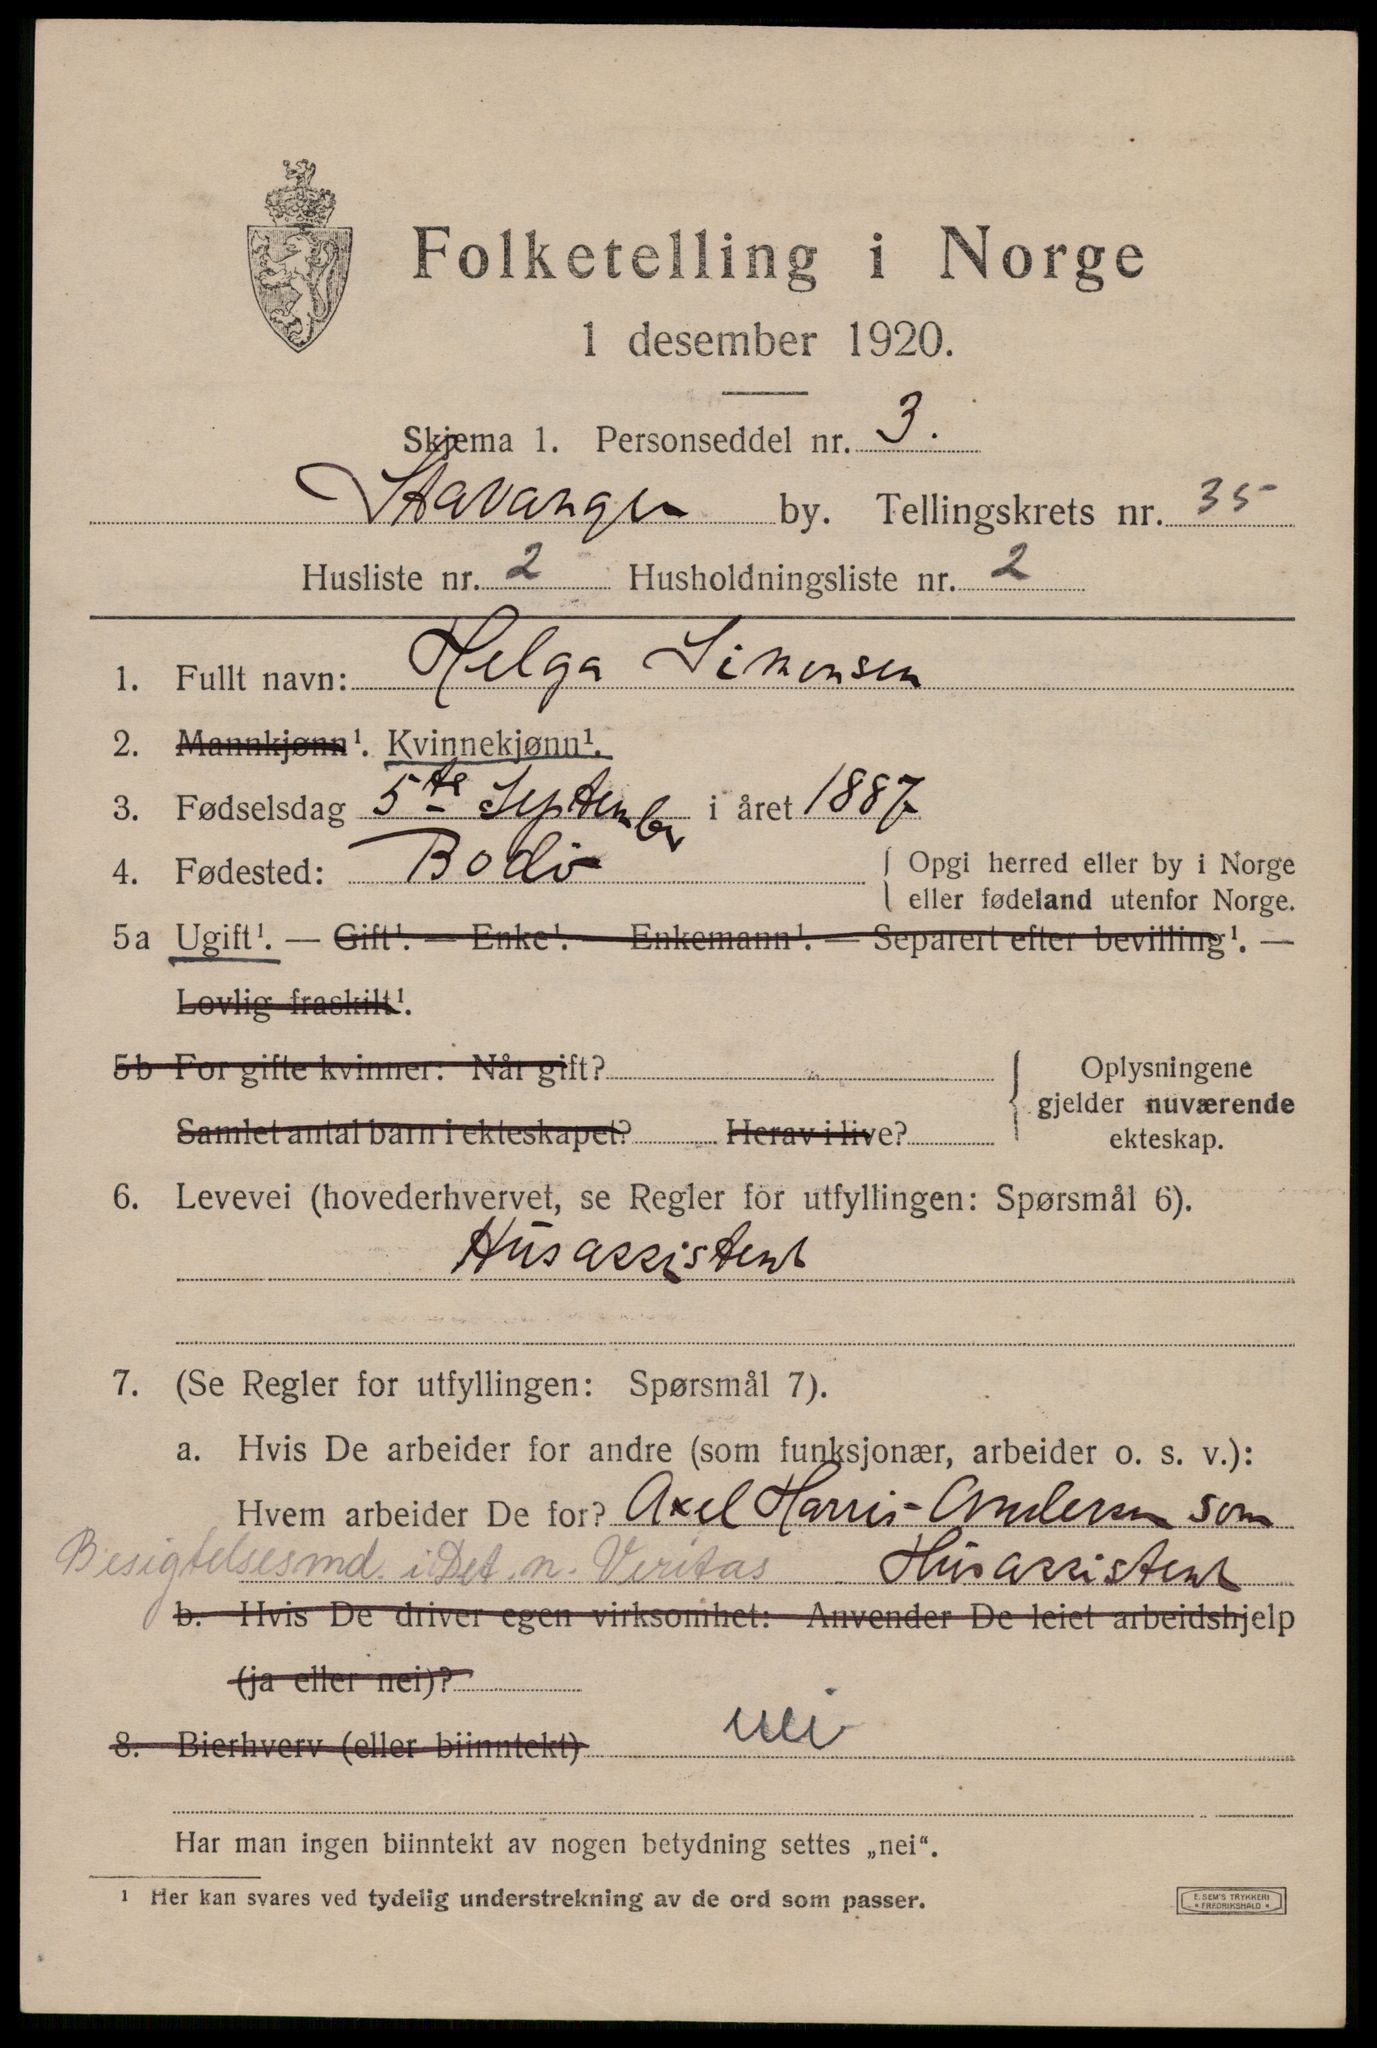 Folketelling i Norge
1 desember 1920.
Skjema 1. Personseddel nr. 3.
Stavanger by. Tellingskrets nr. 35
Husliste nr. 2 Husholdningsliste nr. 2
1. Fullt navn: Helga Simonsen
2. Mannkjønn¹. Kvinnekjønn¹.
3. Fødselsdag 5te September i året 1887
4. Fødested: Bodö { Opgi herred eller by i Norge
eller fødeland utenfor Norge.
5a Ugift¹. — Gift¹. — Enke¹. — Enkemann¹. — Separert efter bevilling¹. —
Lovlig fraskilt¹.
5b For gifte kvinner: Når gift?
Samlet antal barn i ekteskapet? Herav i live?
{ Oplysningene
gjelder nuværende
ekteskap.
6. Levevei (hovederhvervet, se Regler for utfyllingen: Spørsmål 6).
Husassistent
7. (Se Regler for utfyllingen: Spørsmål 7).
a. Hvis De arbeider for andre (som funksjonær, arbeider o. s. v.):
Hvem arbeider De for? Axel Harris-Andersen som
Besigtelsesmd. i Det. n. Veritas Husassistent
b. Hvis De driver egen virksomhet: Anvender De leiet arbeidshjelp
(ja eller nei)?
8. Bierhverv (eller biinntekt) nei
Har man ingen biinntekt av nogen betydning settes „nei“.
¹ Her kan svares ved tydelig understrekning av de ord som passer.
E. SEM'S TRYKKERI
* FREDRIKSHALD *